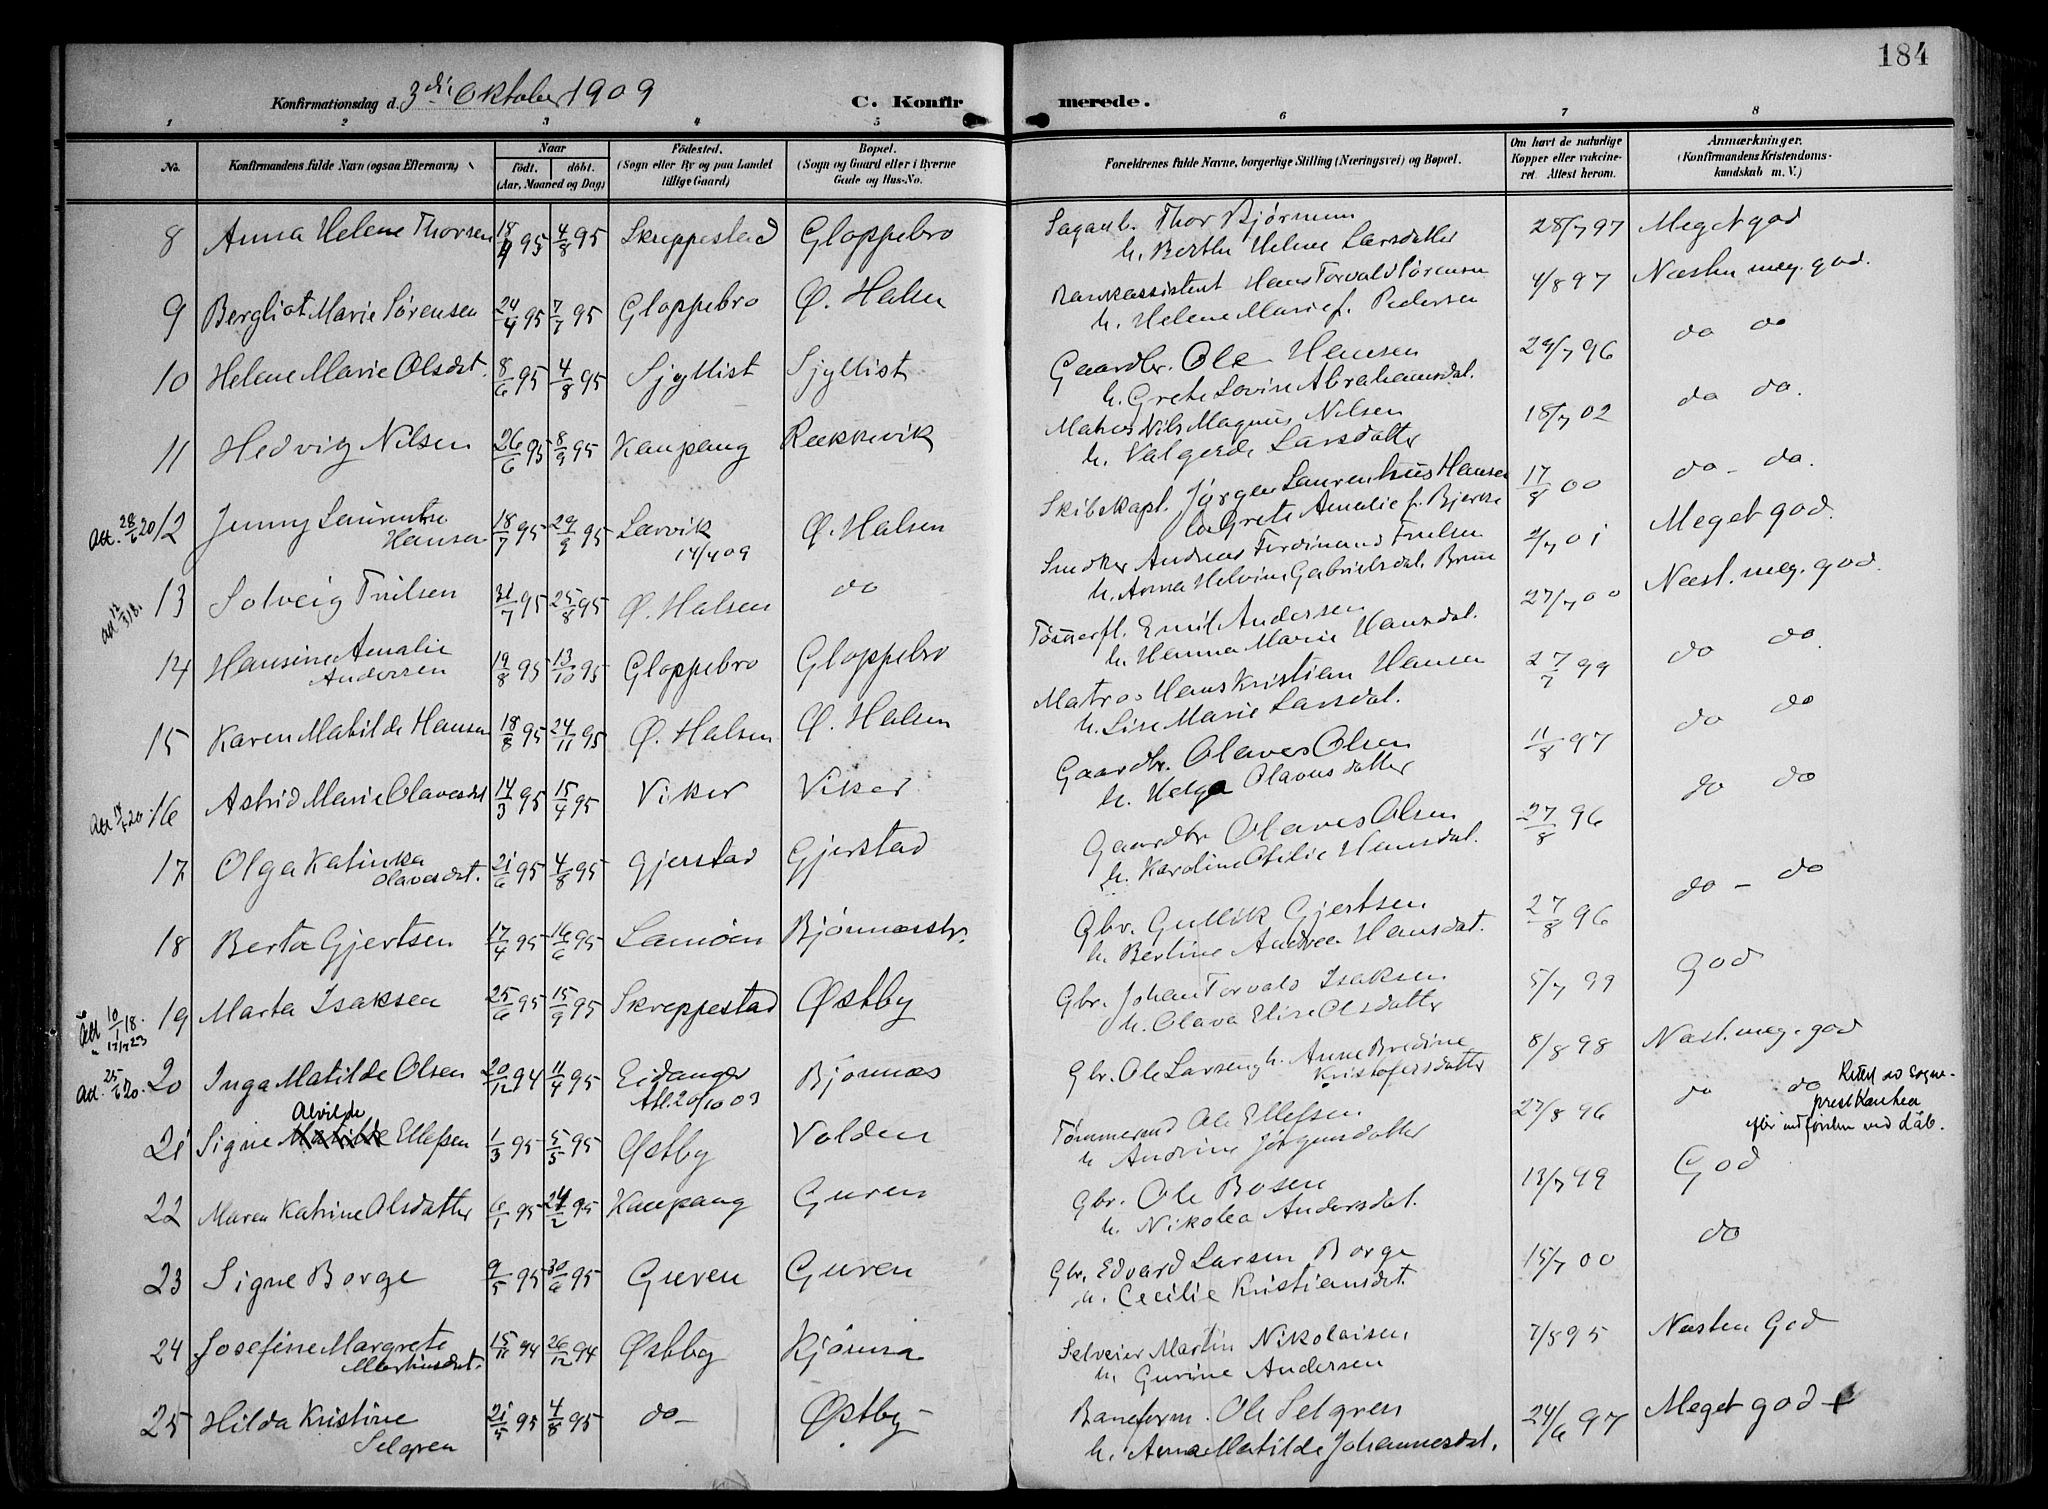 184
Konfirmationsdag d. 3die Oktober 1909 C. Konfirmerede.
1 2 3 4 5 6 7 8
No. Konfirmandens fulde Navn (ogsaa Efternavn) Naar født. døbt. (Aar, Maaned og Dag) Fødested. (Sogn eller By og paa Landet tillige Gaard) Bopæl. (Sogn og Gaard eller i Byerne Gade og Hus-No. Forældrenes fulde Navne, borgerlige Stilling (Næringsvei) og Bopæl. Om havt de naturlige Kopper eller vakcineret. Attest herom. Anmærkninger. (Konfirmandens Kristendomskundskab m. V.)
8 Anna Helene Thorsen 18/4 95 4/8 95 Skreppestad Gloppebro Sagarb. Thor Bjørnsen 28/7 97 Meget god
h. Berthe Helene Larsdatter
9 Bergliot Marie Sørensen 24/4 95 7/7 95 Gloppebro Ø. Halsen Bankassistent Hans Torvald Sørensen 4/8 97 Næsten meg. god.
h. Helene Marie f. Pedersen
10 Helene Marie Olsdat. 8/6 95 4/8 95 Sjyllist Sjyllist Gaardbr. Ole Hansen 29/7 96 do do
h. Grete Lovise Abrahamsdat.
11 Hedvig Nilsen 26/6 95 8/9 95 Kaupang Rekkevik Matros Nils Magnus Nilsen 18/7 02 do do.
h. Valgerde Larsdatter
Att. 28/6 20 12 Jenny Laurentse Hansen 18/7 95 29/9 95 Larvik 14/4 09 Ø. Halsen Skibskapt. Jørgen Laurentius Hansen 17/8 00 do - do.
h. Grete Amalie f. Bjerke
Att 12/3 18. 13 Solveig Trulsen 31/7 95 25/8 95 Ø. Halsen do Snedker Andreas Ferdinand Trulsen 2/7 01 Meget god.
h. Anna Helvine Gabrielsdat. Brun
14 Hansine Amalie Andersen 19/8 95 13/10 95 Gloppebro Gloppebro Tømmerfl. Emil Andersen 27/7 00 Næst. meg. god.
h. Hanna Marie Hansdat.
15 Karen Matilde Hansen 18/8 95 24/11 95 Ø. Halsen Ø. Halsen Matros Hans Kristian Hansen 27/7 99 do do.
h. Lise Marie Larsdat.
16 Astrid Marie Olavesdat 14/3 95 15/4 95 Viker Viker Gaardbr. Olaves Olsen 11/8 97 do do
h. Helga Olavesdatter
17 Olga Katinka Olavesdat. 21/6 95 4/8 95 Gjerstad Gjerstad Gaardbr Olaves Olsen 27/8 96 do do
h. Karoline Otilie Hansdat.
18 Berta Gjertsen 17/4 95 16/6 95 Lamøen Bjønnesstr. Gbr. Gullik Gjertsen 27/8 96 do - do
h. Bertine Andrea Hansdat.
Att 10/1 18. " 17/7 23 19 Marta Isaksen 25/6 95 15/9 95 Skreppestad Østby Gbr. Johan Torvald Isaksen 5/7 99 God
h. Olava Elise Olsdatter
Att. 25/6 20. 20 Inga Matilde Olsen 20/12 94 11/4 95 Eidanger Att. 20/10 09 Bjønnes Gbr. Ole Larsen h. Anne Bredine Kristofersdatter 8/8 98 Næst. meg. god
21 Signe Alvilde Matilde Ellefsen 1/3 95 5/5 95 Østby Volden Tømmermd Ole Ellefsen 27/8 96 do do
h Andrine Jørgensdatter
22 Maren Katrine Olsdatter 6/1 95 24/2 95 Kaupang Guren Gbr. Ole Bosen 13/7 99 God
h. Nikolea Andersdat.
23 Signe Borge 9/5 95 30/6 95 Guren Guren Gbr. Edvard Larsen Borge 15/7 00 do
h. Cecilie Kristiansdat.
24 Josefine Margrete Martinsdat. 15/11 94 26/12 94 Østby Kjønna Selveier Martin Nikolaisen, 7/8 95 Næsten God
h. Gurine Andersen
25 Hilda Kristine Selgren 21/5 95 4/8 95 do- Østby- Baneform. Ole Selgren 24/6 97 Meget god
h. Anna Matilde Johannesdat.